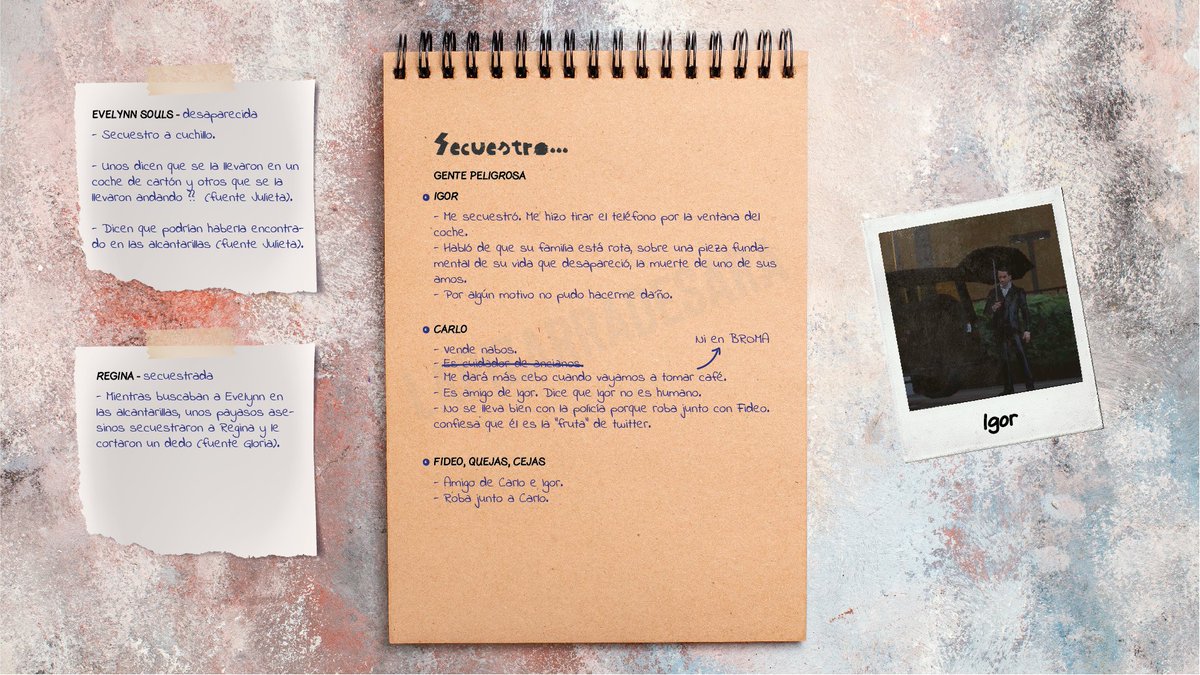 EVELYNN SOULS - desaparecida
- Secuestro a cuchillo.
- Unos dicen que se la llevaron en un
coche de cartón y otros que se la
llevaron andando ?? (fuente Julieta).
- Dicen que podrían haberla encontra-
do en las alcantarillas (fuente Julieta).
REGINA - secuestrada
- Mientras buscaban a Evelynn en
las alcantarillas, unos payasos ase-
sinos secuestraron a Regina y le
cortaron un dedo (fuente Gloria).
Secuestro...
GENTE PELIGROSA
IGOR
- Me secuestró. Me hizo tirar el teléfono por la ventana del
coche.
- Habló de que su familia está rota, sobre una pieza funda-
mental de su vida que desapareció, la muerte de uno de sus
amos.
- Por algún motivo no pudo hacerme daño.
CARLO
- Vende nabos.
- Es cuidador de ancianos.
- Me dará más cebo cuando vayamos a tomar café.
Ni en BROMA
- Es amigo de Igor. Dice que Igor no es humano.
- No se lleva bien con la policía porque roba junto con Fideo.
confiesa que él es la "fruta" de twitter.
FIDEO, QUEJAS, CEJAS
- Amigo de Carlo e Igor.
- Roba junto a Carlo.
Igor